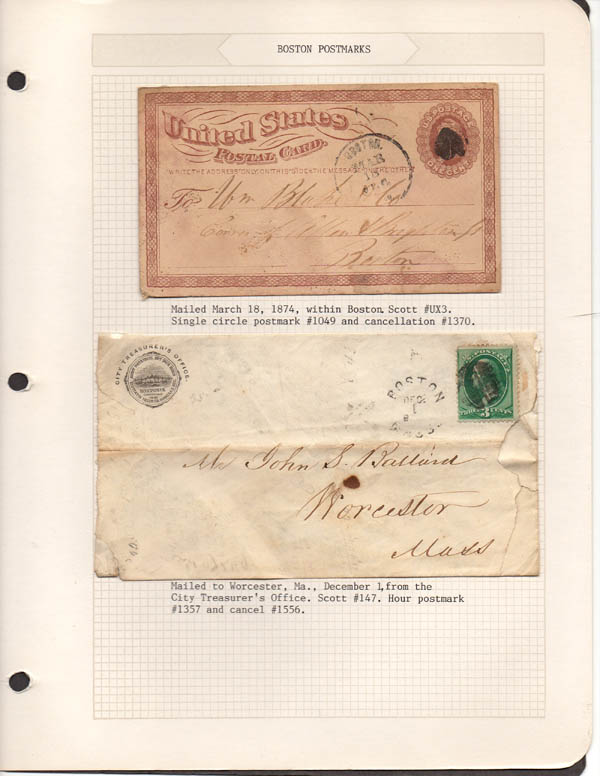 BOSTON POSTMARKS
U.S. POSTAGE
ONE CENT
United States
POSTAL CARD.
WRITE THE ADDRESS ONLY ON THIS SIDE THE MESSAGE ON THE OTHER
BOSTON.
MAR
18
To Wm Blake & Co
Corner of Allen & Brighton St
Boston
Mailed March 18, 1874, within Boston. Scott #UX3.
Single circle postmark #1049 and cancellation #1370.
CITY TREASURER'S OFFICE.
BOSTON
DEC
1
MASS.
U.S. POSTAGE
THREE 3 CENTS
Mr John S. Ballard
Worcester
Mass
Mailed to Worcester, Ma., December 1, from the
City Treasurer's Office. Scott #147. Hour postmark
#1357 and cancel #1556.